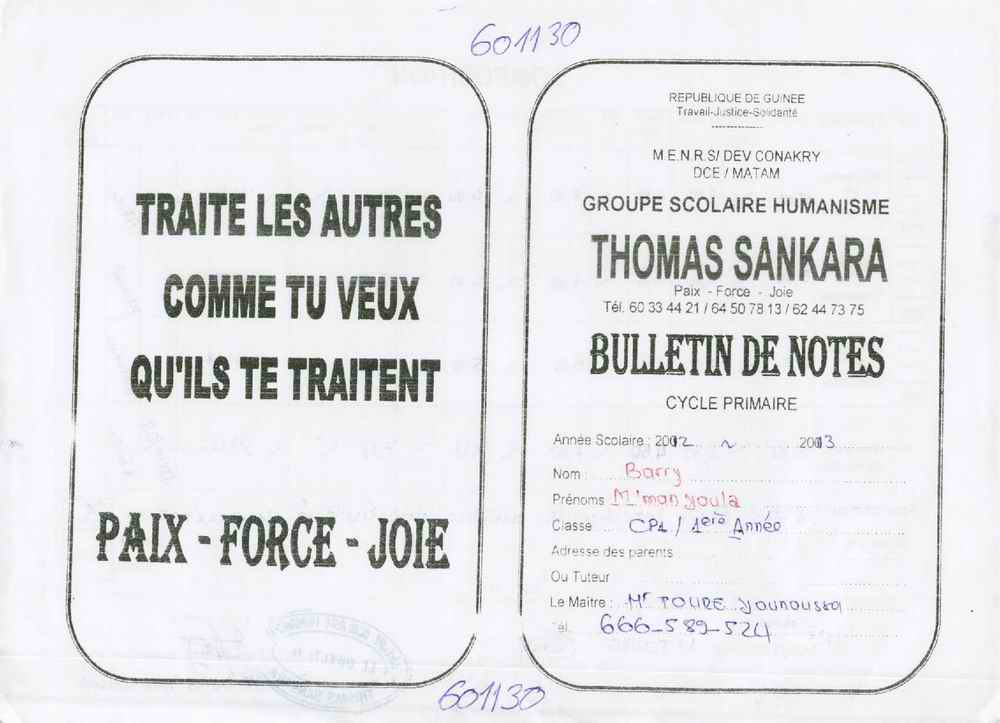 601130
TRAITE LES AUTRES
COMME TU VEUX
QU'ILS TE TRAITENT
PAIX - FORCE - JOIE
REPUBLIQUE DE GUINEE
Travail-Justice-Solidarité
M.E.N.R.S/ DEV CONAKRY
DCE / MATAM
GROUPE SCOLAIRE HUMANISME
THOMAS SANKARA
Paix - Force - Joie
Tél. 60 33 44 21 / 64 50 78 13 / 62 44 73 75
BULLETIN DE NOTES
CYCLE PRIMAIRE
Année Scolaire : 2012 ~ 2013
Nom : Barry
Prénoms M'mah youla
Classe CP1 / 1ère Année
Adresse des parents
Ou Tuteur
Le Maître : Mr TOURE younoussa
Tél. 666-589-524
601130